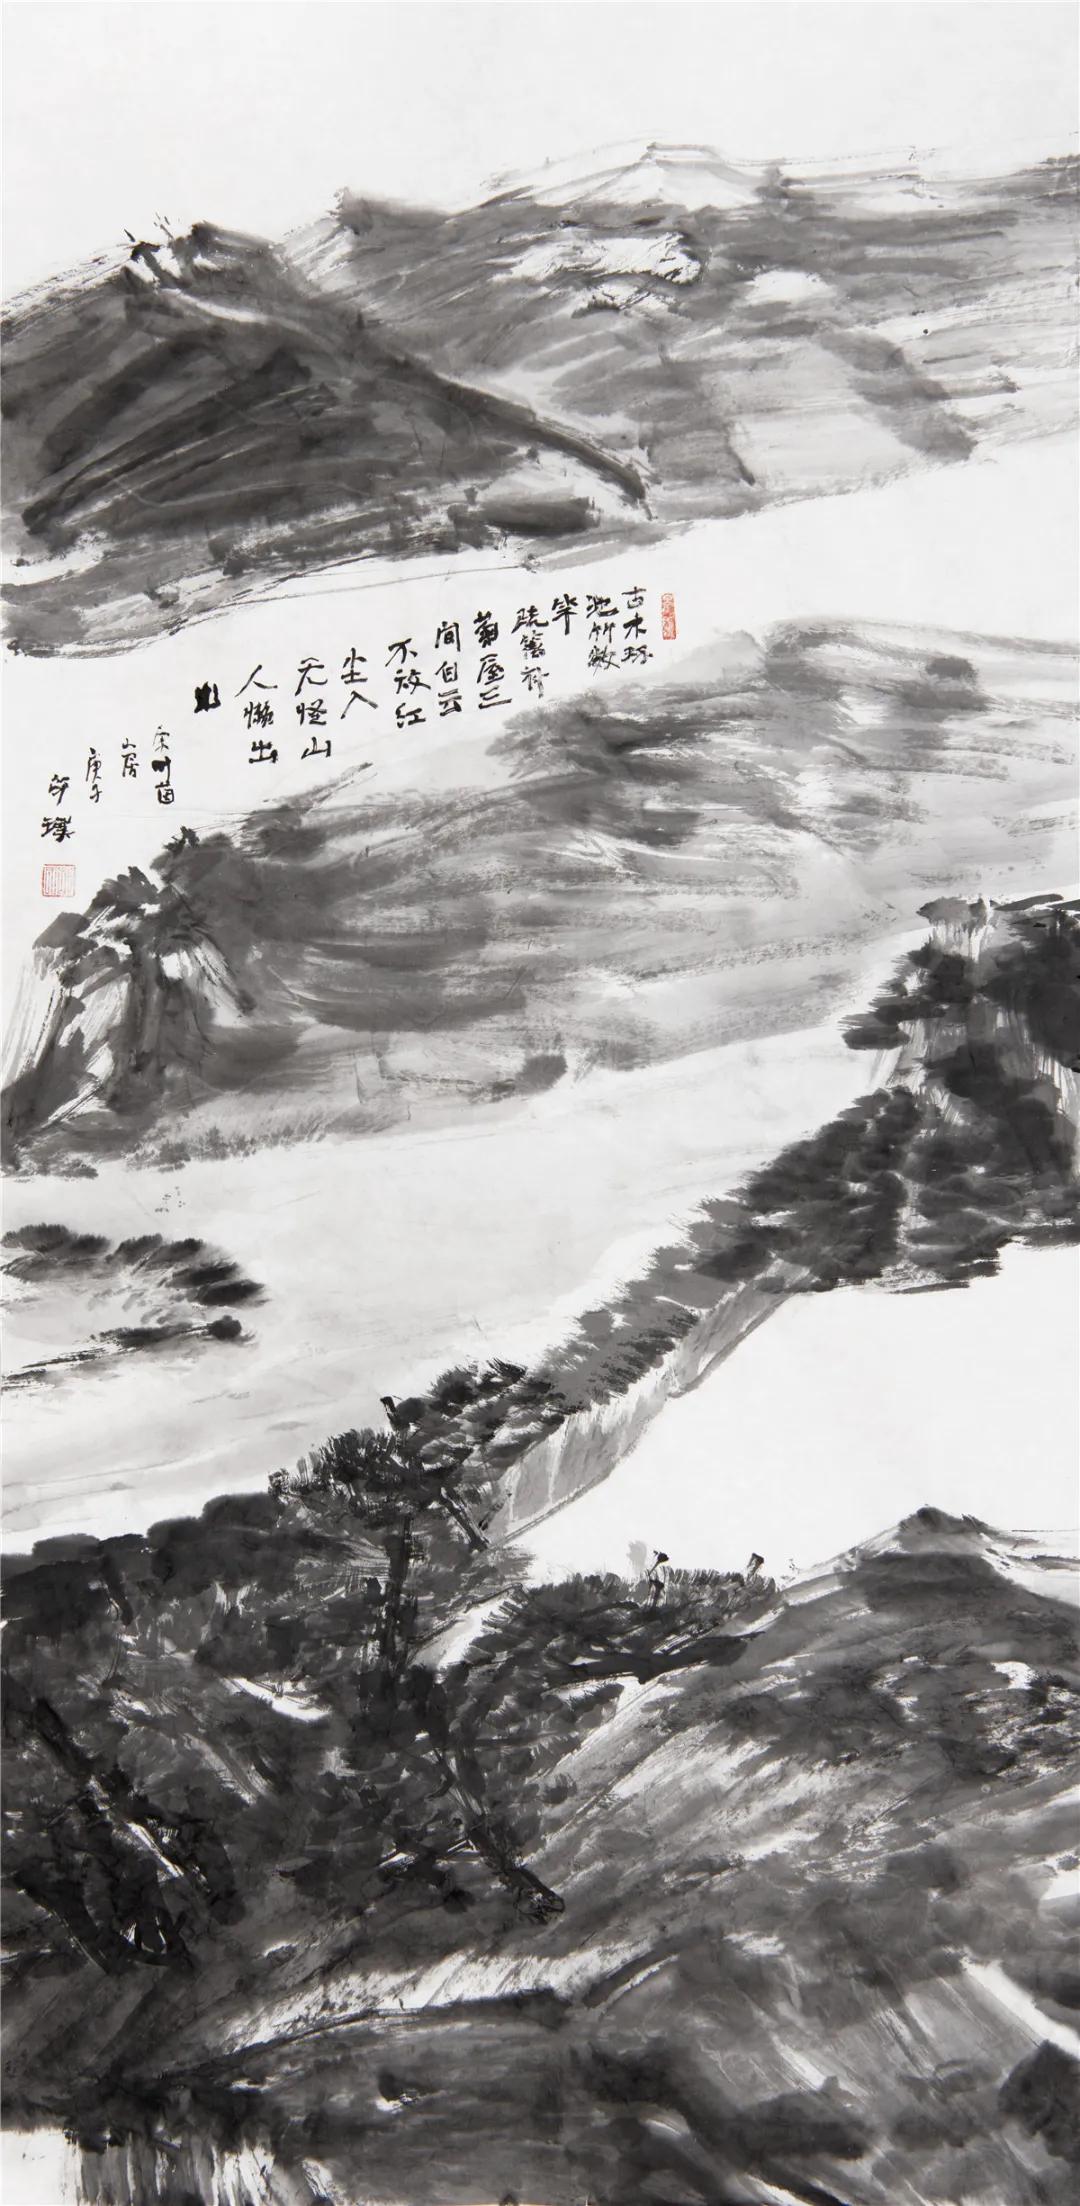 古木环
池竹数
竿
疏篱
菊屋三
间白云
不放红
尘入
无怪山
人懒出
山
宋叶茵
山居
庚子
璞